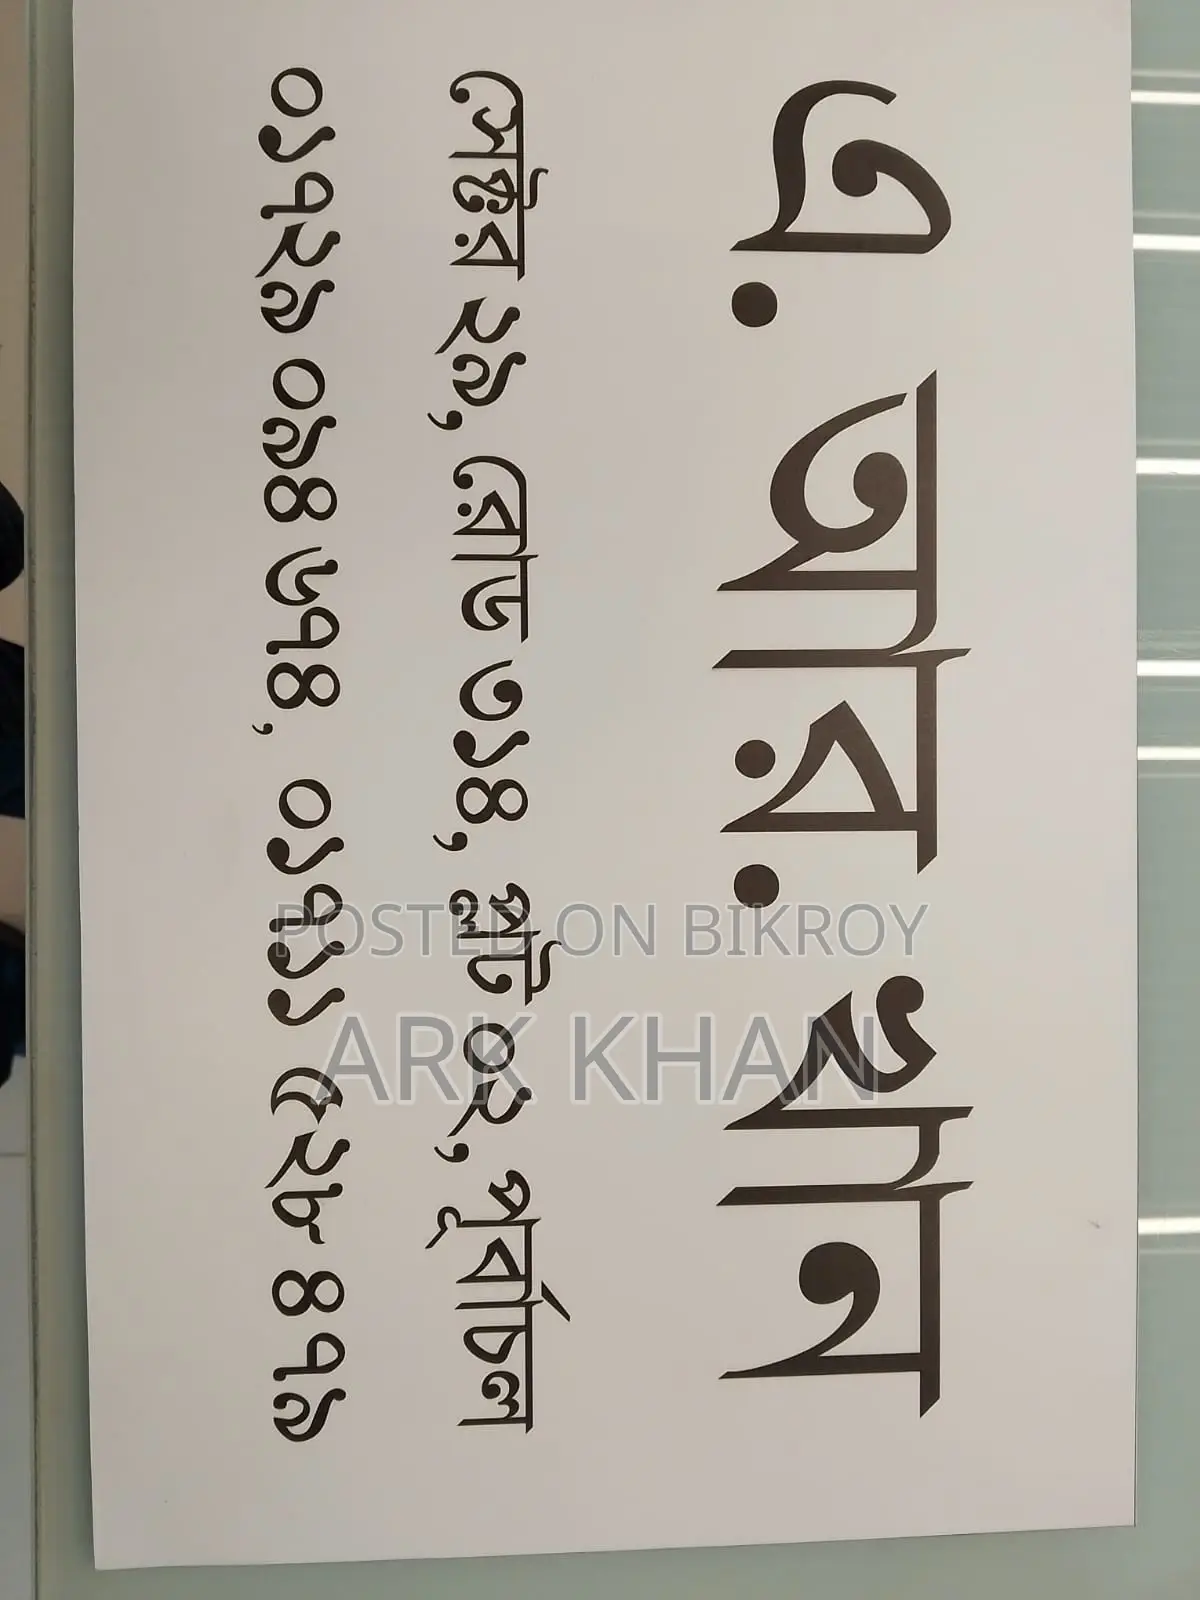 এ. আর. খান
সেক্টর ২৯, রোড ৩১৪, প্লট ০২, পূর্বাচল
০১৭২৯ ০৯৪ ৬৭৪, ০১৭১১ ৫২৮ ৪৭৯
POSTED ON BIKROY
ARK KHAN